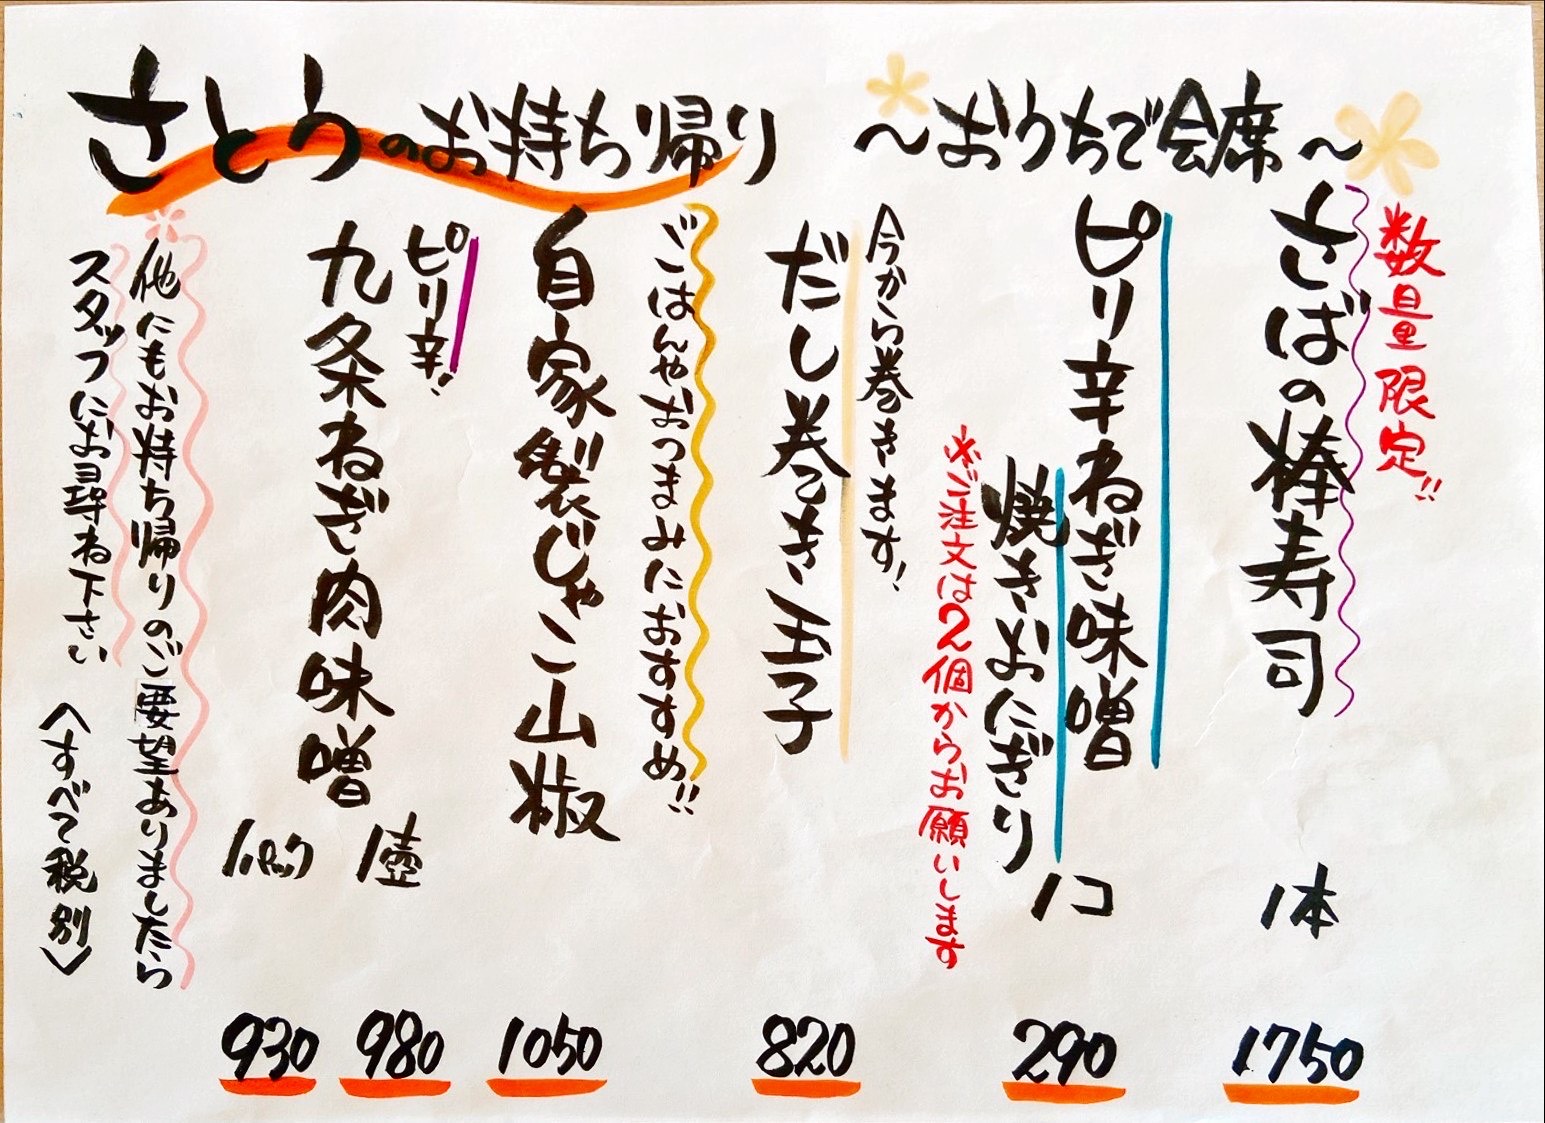 さとうのお持ち帰り
～おうちで会席～
数量限定!!
さばの棒寿司 1本 1750
ピリ辛ねぎ味噌
焼きおにぎり 1コ 290
※ご注文は2個からお願いします
今から巻きます!
だし巻き玉子 820
ごはんやおつまみにおすすめ!!
自家製じゃこ山椒 1050
ピリ辛!
九条ねぎ肉味噌 1壺 980
1パック 930
他にもお持ち帰りのご要望ありましたら
スタッフにお尋ね下さい
〈すべて税別〉